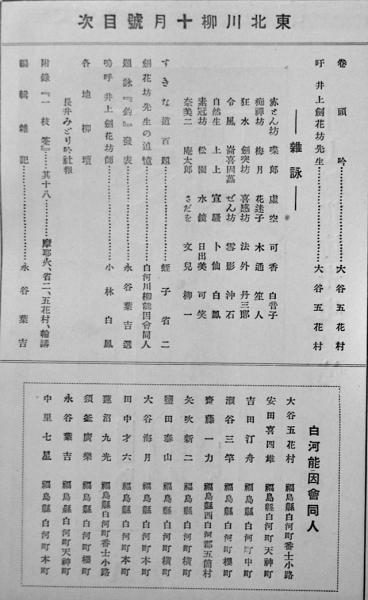 東北川柳十月號目次
巻頭吟 大谷五花村
吁井上劍花坊先生 大谷五花村
―雜詠―
赤とん坊 喋郎 虚空 可香 白昔子
痴禪坊 梅月 花迷子 木通 笙人
狂水 劍突坊 喜聴坊 法外 丹三郎
令風 喜因 ぜん坊 雲影 沖石
自然生 上上 宣騷 卜仙 白鳳
素冠坊 松園 水鏡 日出美 可笑
奈美二 庵太郎 さだを 文兒 柳一
すきな道百題 蛭子省二
劍花坊先生の追憶 白河川柳能因會同人
題詠『釣』發表 永谷葉吉選
嗚呼井上劍花坊師 小林白鳳
各地柳壇
長井みどり吟社報
附錄『一枝筌』―其十八― 摩耶火、省二、五花村、輪講
編輯雜記 永谷葉吉
白河能因會同人
大谷五花村 福島縣白河町番士小路
安田喜四雄 福島縣白河町天神町
吉田汀舟 福島縣白河町中町
深谷三竿 福島縣白河町櫻町
齋藤一力 福島縣西白河郡五箇村
矢吹新二 福島縣白河町橫町
鹽田泰山 福島縣白河町橫町
大谷海月 福島縣白河町横町
田中才六 福島縣白河町本町
蓮沼九光 福島縣白河町番士小路
須釜慶樂 福島縣白河町櫻町
永谷葉吉 福島縣白河町天神町
中里七星 福島縣白河町本町